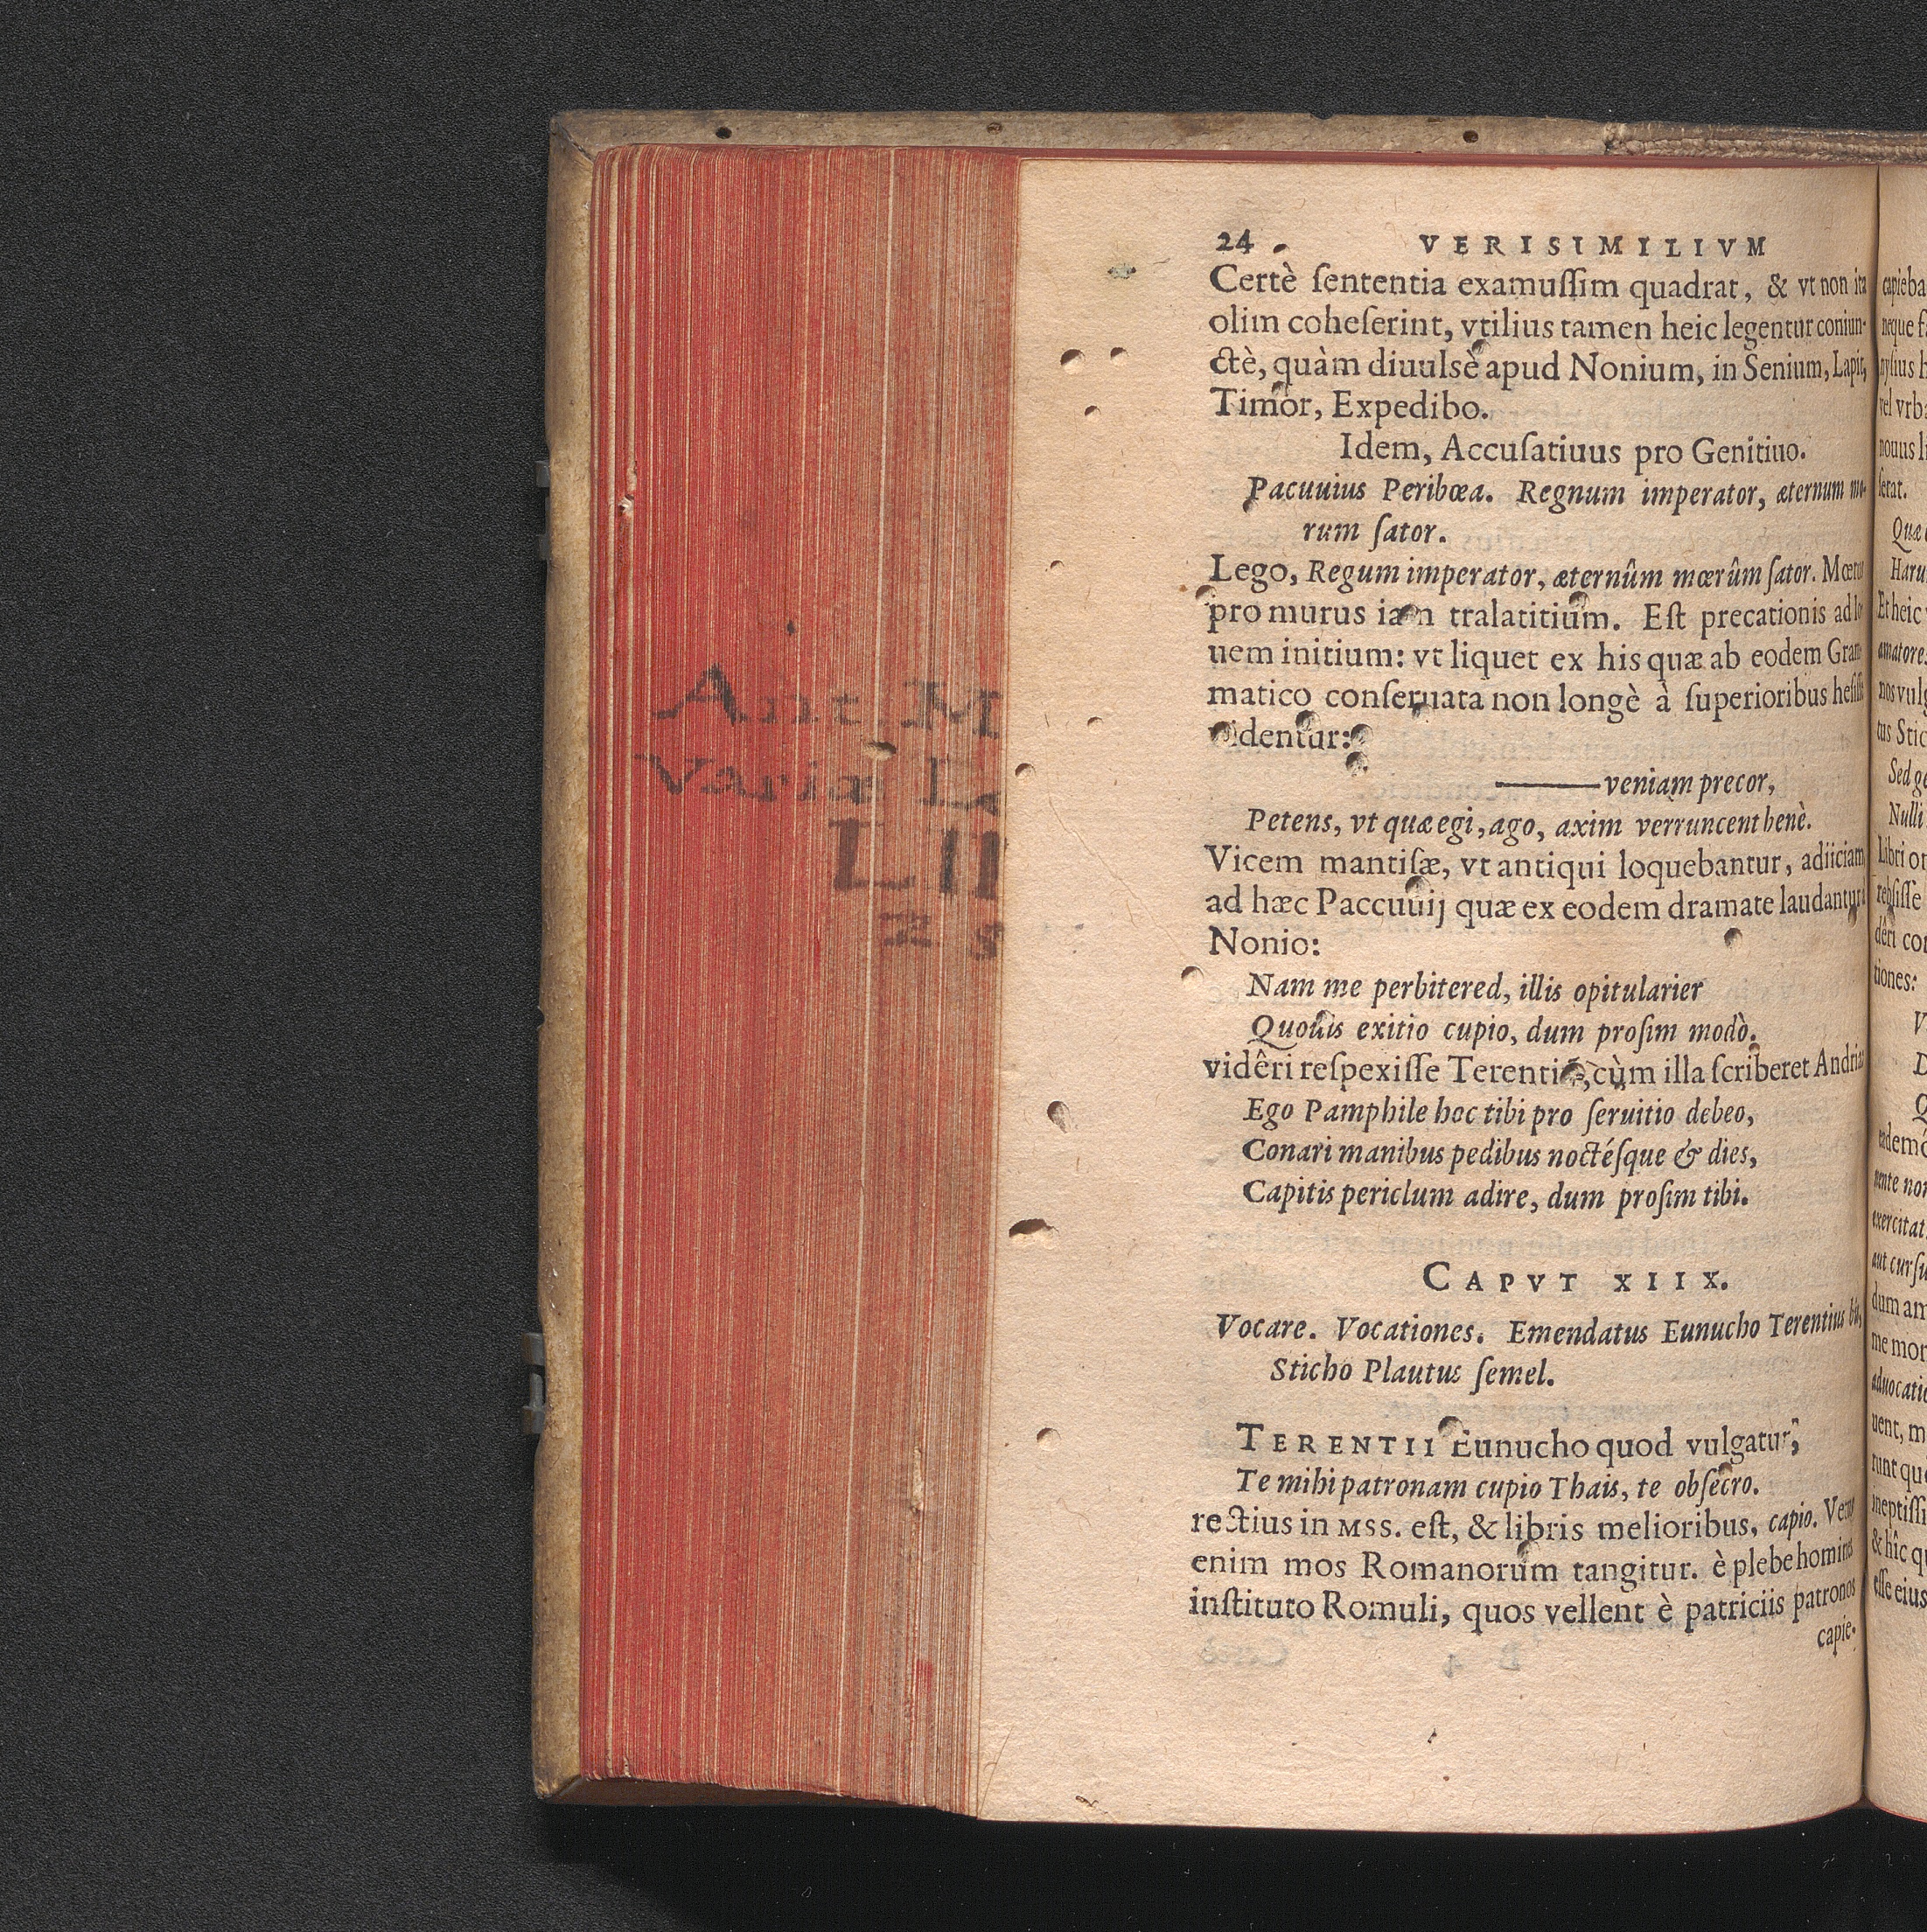 24 VERISIMILIVM
Certè ſententia examuſſim quadrat, & vt non ita
olim coheſerint, vtilius tamen heic legentur coniun-
ctè, quàm diuulsè apud Nonium, in Senium, Lapit,
Timor, Expedibo.
Idem, Accuſatiuus pro Genitiuo.
Pacuuius Peribœa. Regnum imperator, æternum mo-
rum ſator.
Lego, Regum imperator, æternûm mœrûm ſator. Mœrus
pro murus iam tralatitium. Eſt precationis ad Io-
uem initium: vt liquet ex his quæ ab eodem Gram-
matico conſeruata non longè à ſuperioribus
videntur:
veniam precor,
Petens, vt quæ egi, ago, axim verruncent benè.
Vicem mantiſæ, vt antiqui loquebantur, adiiciam
ad hæc Paccuuij quæ ex eodem dramate laudantur
Nonio:
Nam me perbitered, illis opitularier
Quouis exitio cupio, dum proſim modò.
vidêri reſpexiſſe Terentiũ, cùm illa ſcriberet Andria
Ego Pamphile hoc tibi pro ſeruitio debeo,
Conari manibus pedibus noctéſque & dies,
Capitis periclum adire, dum proſim tibi.
CAPVT XIIX.
Vocare. Vocationes. Emendatus Eunucho Terentius bis,
Sticho Plautus ſemel.
TERENTII Eunucho quod vulgatur,
Te mihi patronam cupio Thais, te obſecro.
rectius in MSS. eſt, & libris melioribus, capio. Vetus
enim mos Romanorum tangitur. è plebe homines
inſtituto Romuli, quos vellent è patriciis patronos
capie-
Ant. M
Variæ